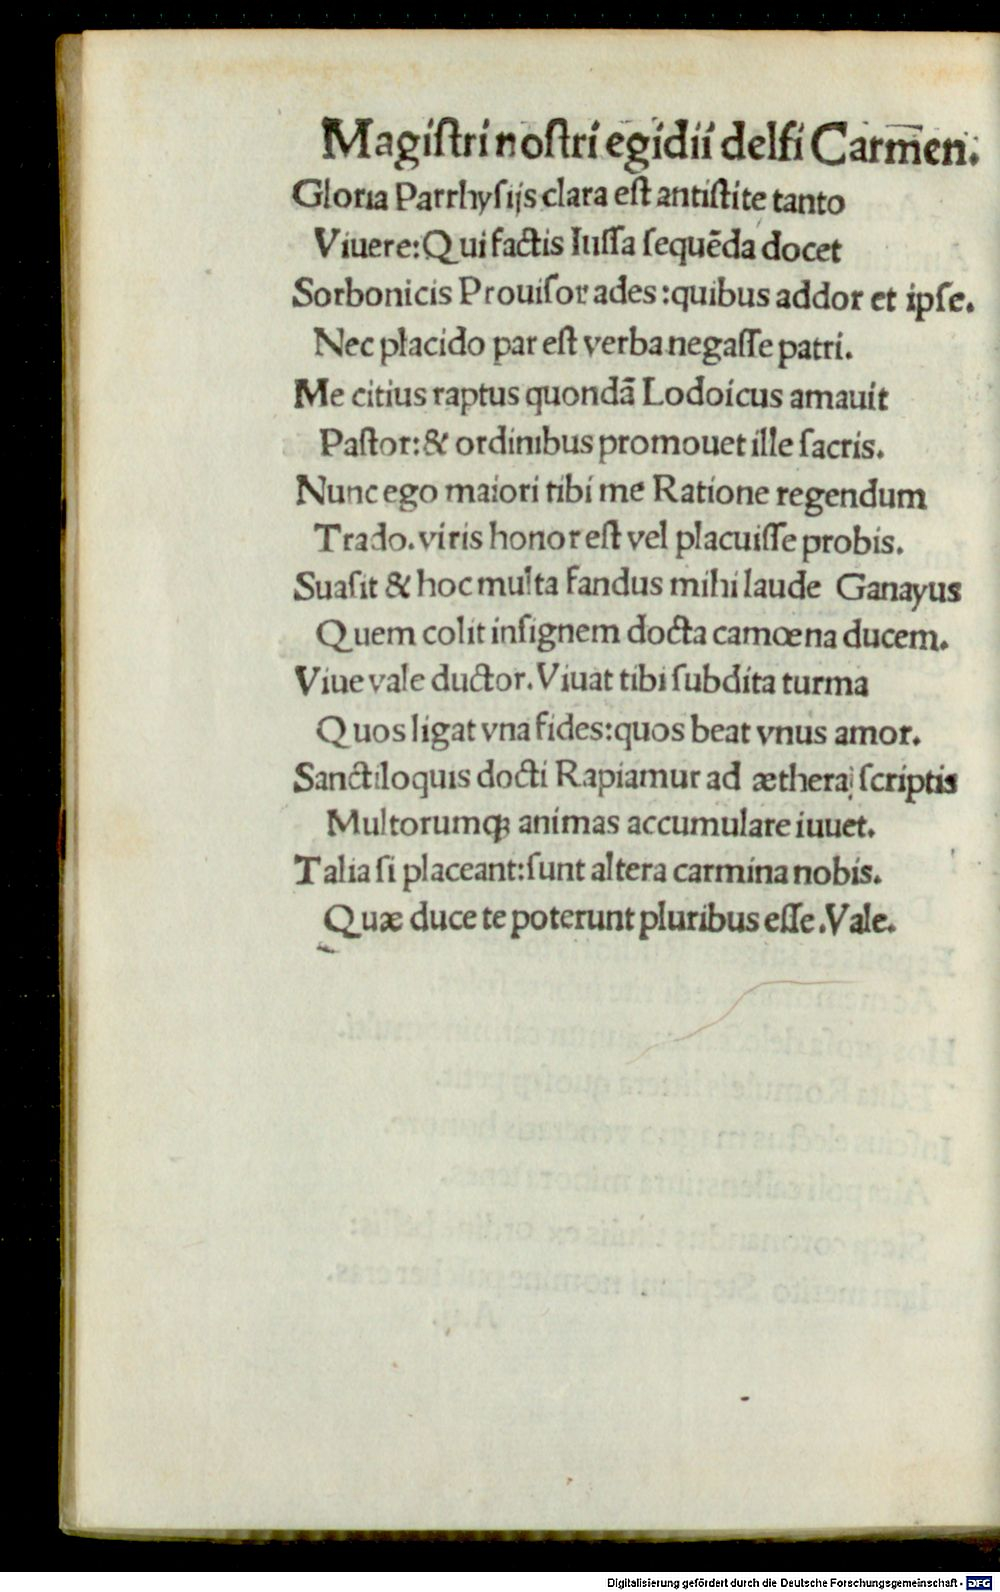 Magiſtri noſtri egidii delfi Carmen̄.
Gloria Parrhyſijs clara eſt antiſtite tanto
Viuere: Qui factis Iuſſa ſequēda docet
Sorbonicis Prouiſor ades: quibus addor et ipſe.
Nec placido par eſt verba negaſſe patri.
Me citius raptus quondā Lodoicus amauit
Paſtor: & ordinibus promouet ille ſacris.
Nunc ego maiori tibi me Ratione regendum
Trado. viris honor eſt vel placuiſſe probis.
Suaſit & hoc multa fandus mihi laude Ganayus
Quem colit inſignem docta camœna ducem.
Viue vale ductor. Viuat tibi ſubdita turma
Quos ligat vna fides: quos beat vnus amor.
Sanctiloquis docti Rapiamur ad æthera ſcriptis
Multorumqꝫ animas accumulare iuuet.
Talia ſi placeant: ſunt altera carmina nobis.
Quæ duce te poterunt pluribus eſſe. Vale.
Digitalisierung gefördert durch die Deutsche Forschungsgemeinschaft - DFG